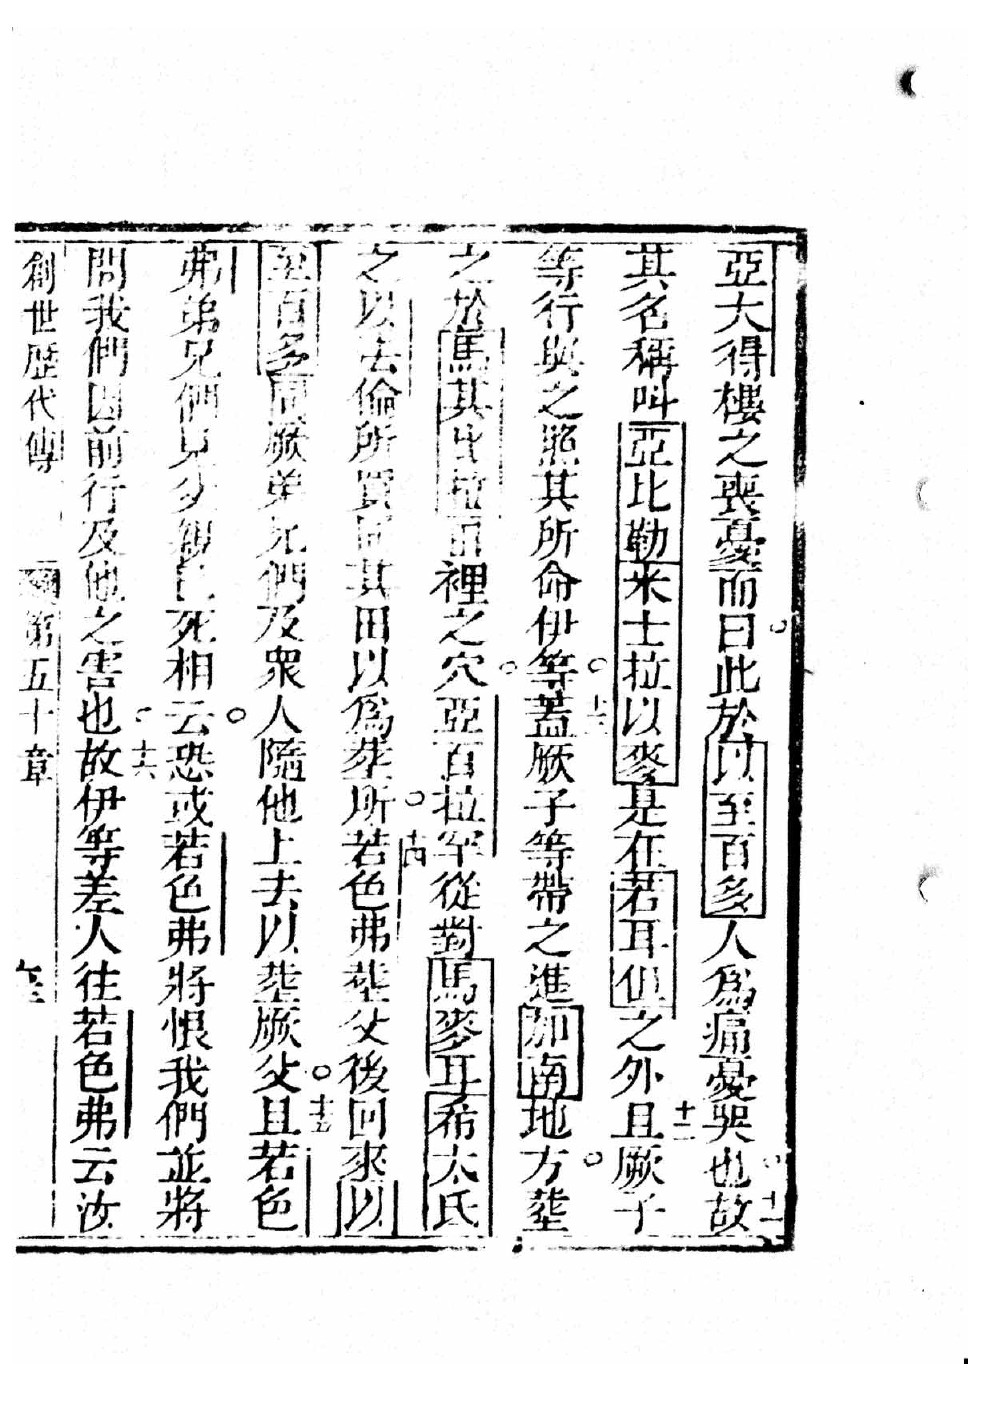 亞大得樓之喪憂而曰此於以至百多人爲痛憂哭也故十一
其名稱叫亞比勒米士拉以麥是在若耳但之外且厥子十二
等行與之照其所命伊等蓋厥子等帶之進加南地方塟十三
之於馬其比拉田裡之穴亞百拉罕從對馬麥耳希太氏
之以法倫所買同其田以爲塟所若色弗塟父後回來以十四
至百多同厥弟兄們及衆人隨他上去以塟厥父且若色十五
弗弟兄們見父親已死相云恐或若色弗將恨我們並將
問我們因前行及他之害也故伊等差人往若色弗云汝十六
創世歷代傳 第五十章